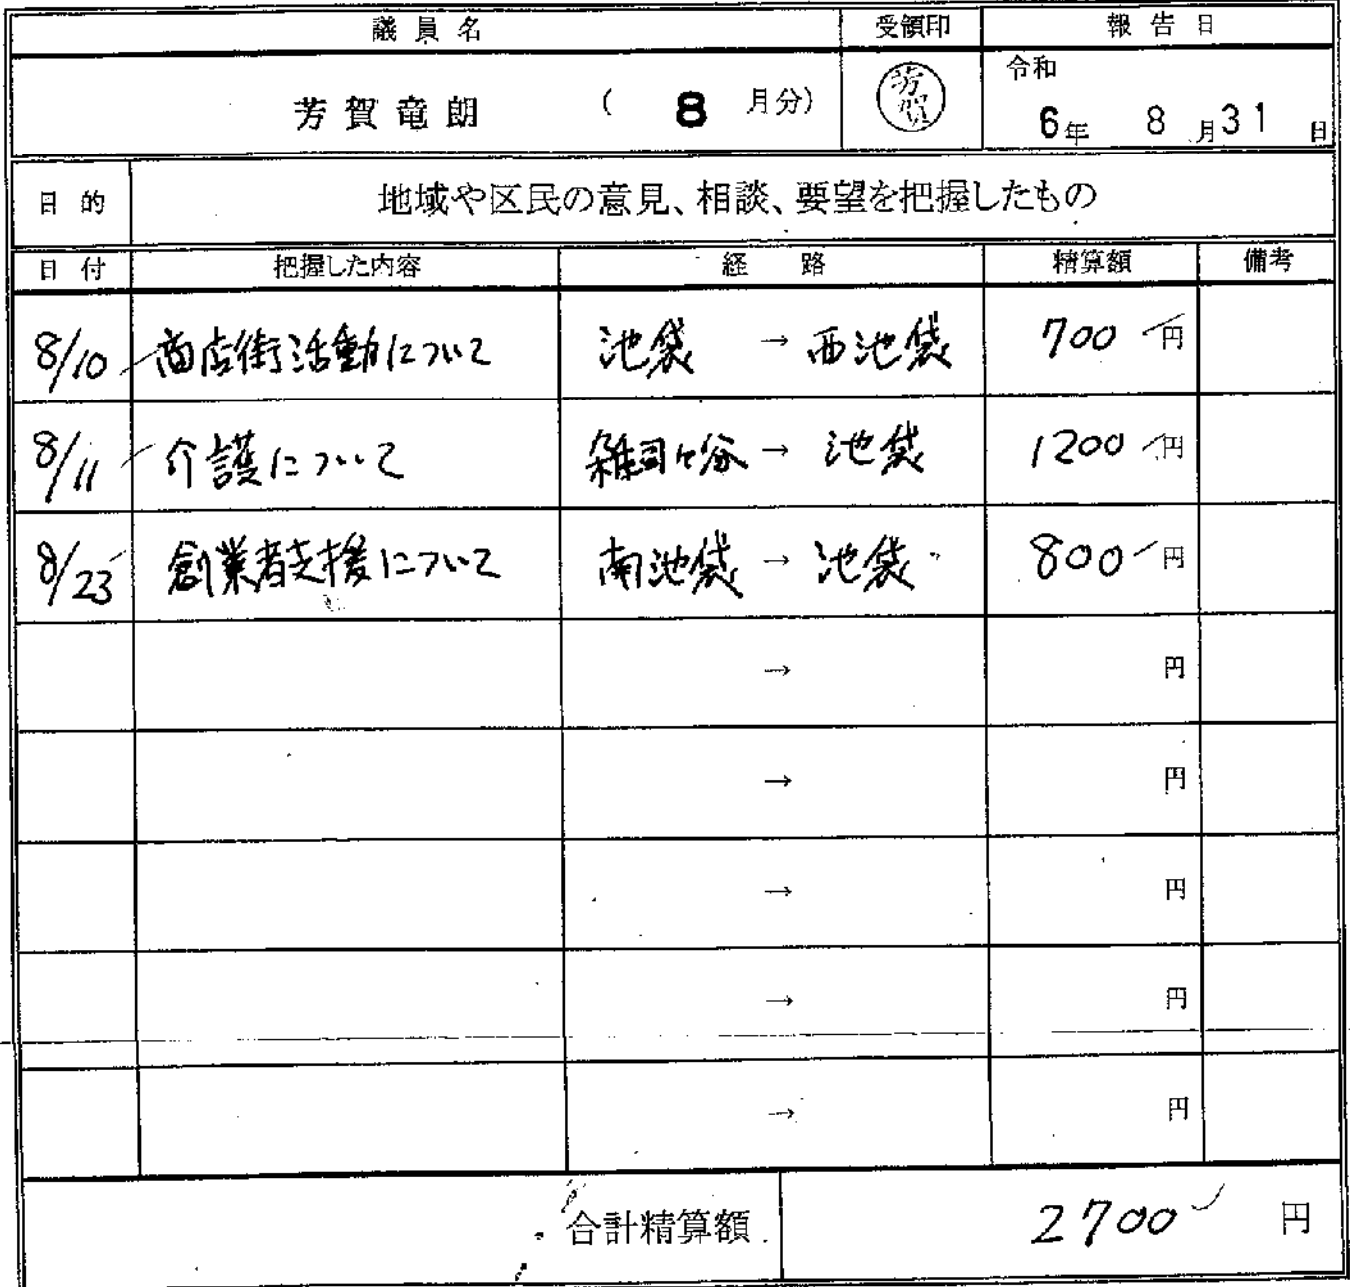 議員名 受領印 報告日
芳賀竜朗 ( 8 月分) 芳賀 令和 6年 8月31日
目的 地域や区民の意見、相談、要望を把握したもの
日付 把握した内容 経路 精算額 備考
8/10 商店街活動について 池袋 → 西池袋 700 円
8/11 介護について 雑司ヶ谷 → 池袋 1200 円
8/23 創業者支援について 南池袋 → 池袋 800 円
→ 円
→ 円
→ 円
→ 円
→ 円
合計精算額 2700 円